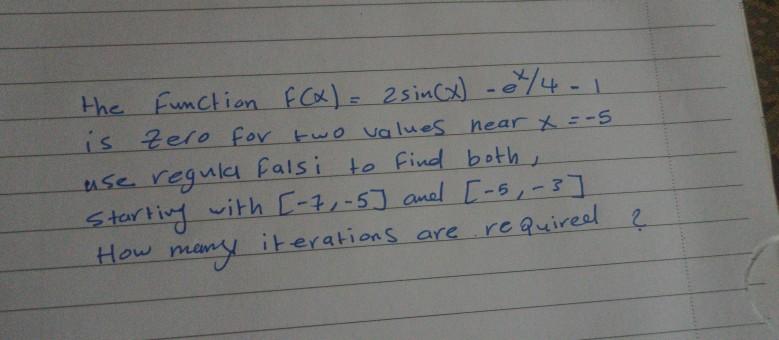 the Function f(x) = 2sin(x) - e^x/4 - 1
is zero for two values near x = -5
use regula falsi to find both,
starting with [-7,-5] and [-5,-3]
How many iterations are required ?